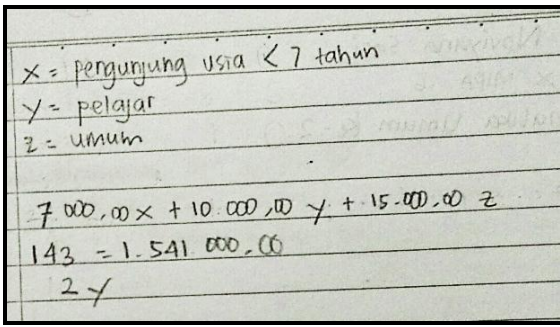 x = pengunjung usia < 7 tahun
y = pelajar
z = umum
7.000,00 x + 10.000,00 y + 15.000,00 z
143 = 1.541.000,00
2y